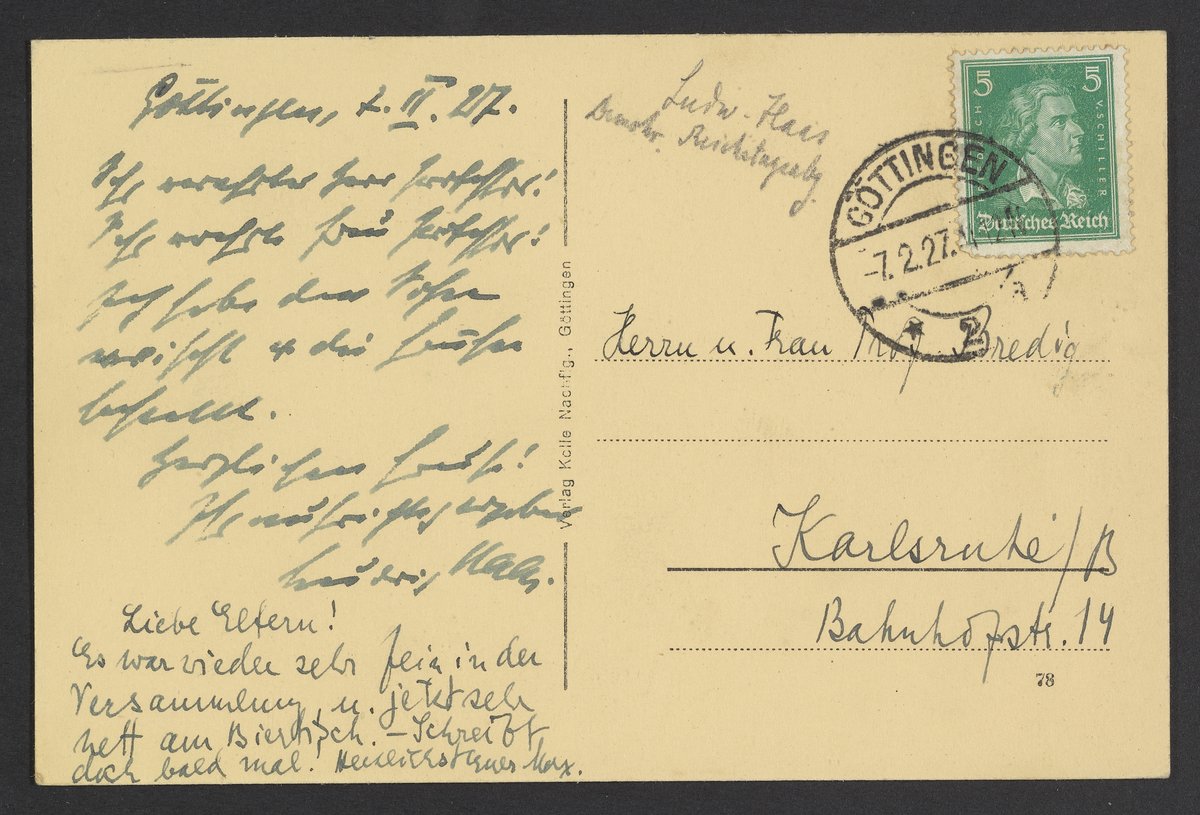 Göttingen, 7. II. 27.
Sehr verehrter Herr Professor!
Sehr verehrte Frau Professor!
Ich habe den Sohn
erwischt & die Grüsse
bestellt.
Herzlichen Gruss!
Ihr aufrichtig ergebener
Ludwig Haas.
Liebe Eltern!
Es war wieder sehr fein in der
Versammlung u. jetzt sehr
nett am Biertisch. – Schreibt
doch bald mal! Herzlichst Euer Max.
Verlag Kolle Nachflg., Göttingen
Ludw. Haas
Demokr. Reichstagsabg.
5 5
V. SCHILLER
Deutsches Reich
GÖTTINGEN
-7.2.27.
* 2
Herrn u. Frau Prof. Bredig
Karlsruhe/B
Bahnhofstr. 14
78